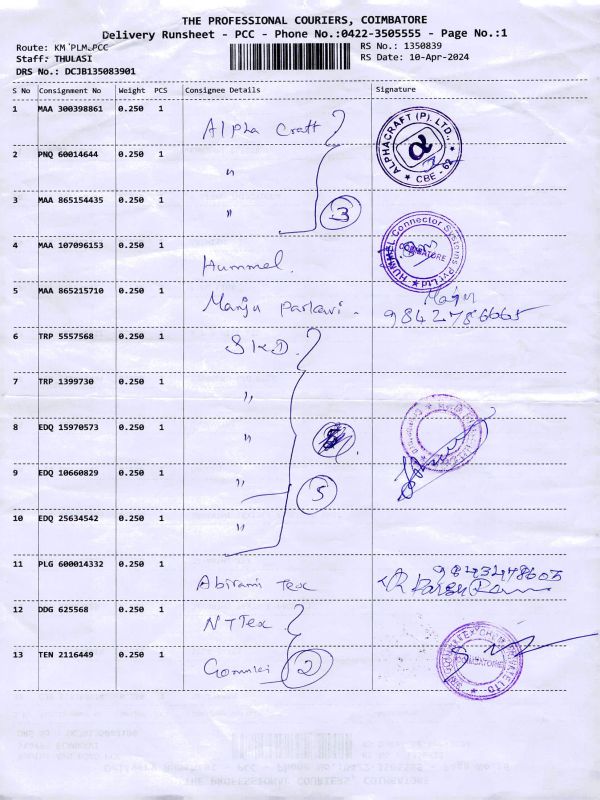 THE PROFESSIONAL COURIERS, COIMBATORE
Delivery Runsheet - PCC - Phone No.:0422-3505555 - Page No.:1
Route: KM PLM-PCC
RS No.: 1350839
Staff: THULASI
RS Date: 10-Apr-2024
DRS No.: DCJB135083901
S No Consignment No Weight PCS Consignee Details Signature
1 MAA 300398861 0.250 1 Alpha Craft
ALPHACRAFT (P). LTD., CBE - 62
2 PNQ 60014644 0.250 1 "
3 MAA 865154435 0.250 1 " 3
4 MAA 107096153 0.250 1 Hummel.
HUMMEL Connector Systems Pvt Ltd COIMBATORE
5 MAA 865215710 0.250 1 Manju Parkavi. Manju
9842786665
6 TRP 5557568 0.250 1 SKD
7 TRP 1399730 0.250 1 "
8 EDQ 15970573 0.250 1 "
9 EDQ 10660829 0.250 1 " 5
10 EDQ 25634542 0.250 1 "
11 PLG 600014332 0.250 1 Abirami Tex 9843478605
12 DDG 625568 0.250 1 NTTex
13 TEN 2116449 0.250 1 2
COIMBATORE